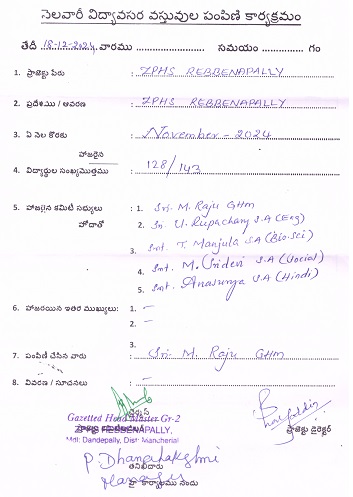 నెలవారీ విద్యావసర వస్తువుల పంపిణీ కార్యక్రమం
తేదీ 18-12-2024 వారము .................... సమయం ............ గం
1. ప్రాజెక్టు పేరు : ZPHS REBBENAPALLY
2. ప్రదేశము / ఆవరణ : ZPHS REBBENAPALLY
3. ఏ నెల కొరకు : November - 2024
హాజరైన
4. విద్యార్థుల సంఖ్య/మొత్తము : 128/143
5. హాజరైన కమిటీ సభ్యులు : 1. Sri. M. Raju GHM
హోదాతో 2. Sri U. Rupachary S.A (Eng)
3. Smt. T. Manjula SA (Bio.Sci)
4. Smt. M. Sridevi S.A (Social)
5. Smt. Anasurya S.A (Hindi)
6. హాజరయిన ఇతర ముఖ్యులు: 1. —
2. —
3.
7. పంపిణీ చేసిన వారు : Sri. M. Raju GHM
8. వివరణ / సూచనలు : —
Gazetted Head Master Gr-2
ZPHS REBBENAPALLY,
Mdl: Dandepally, Dist: Mancherial
ప్రాజెక్టు డైరెక్టర్
P. Dhanalakshmi
తనిఖీదారు